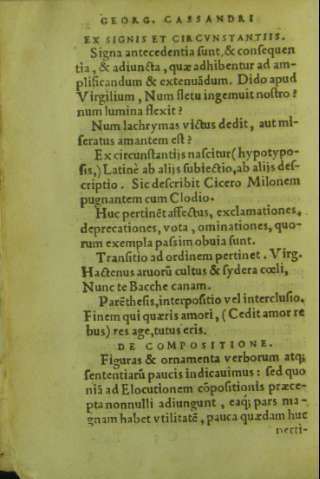 GEORG. CASSANDRI
EX SIGNIS ET CIRCVNSTANTIIS.
Signa antecedentia sunt, & consequen
tia, & adiuncta, quæ adhibentur ad am-
plificandum & extenuãdum. Dido apud
Virgilium, Num fletu ingemuit nostro?
num lumina flexit?
Num lachrymas victus dedit, aut mi-
seratus amantem est?
Ex circunstantijs nascitur (hypotypo-
sis,) Latinè ab alijs subiectio, ab alijs des-
criptio. Sic describit Cicero Milonem
pugnantem cum Clodio.
Huc pertinẽt affectus, exclamationes,
deprecationes, vota, ominationes, quo-
rum exempla passim obuia sunt.
Transitio ad ordinem pertinet. Virg.
Hactenus aruorũ cultus & sydera cœli,
Nunc te Bacche canam.
Parẽthesis, interpositio vel interclusio.
Finem qui quæris amori, (Cedit amor re
bus) res age, tutus eris.
DE COMPOSITIONE.
Figuras & ornamenta verborum atq;
sententiarũ paucis indicauimus: sed quo
niã ad Elocutionem cõpositionis præce-
pta nonnulli adiungunt, eaq; pars ma-
gnam habet vtilitatẽ, pauca quædam huc
perti-